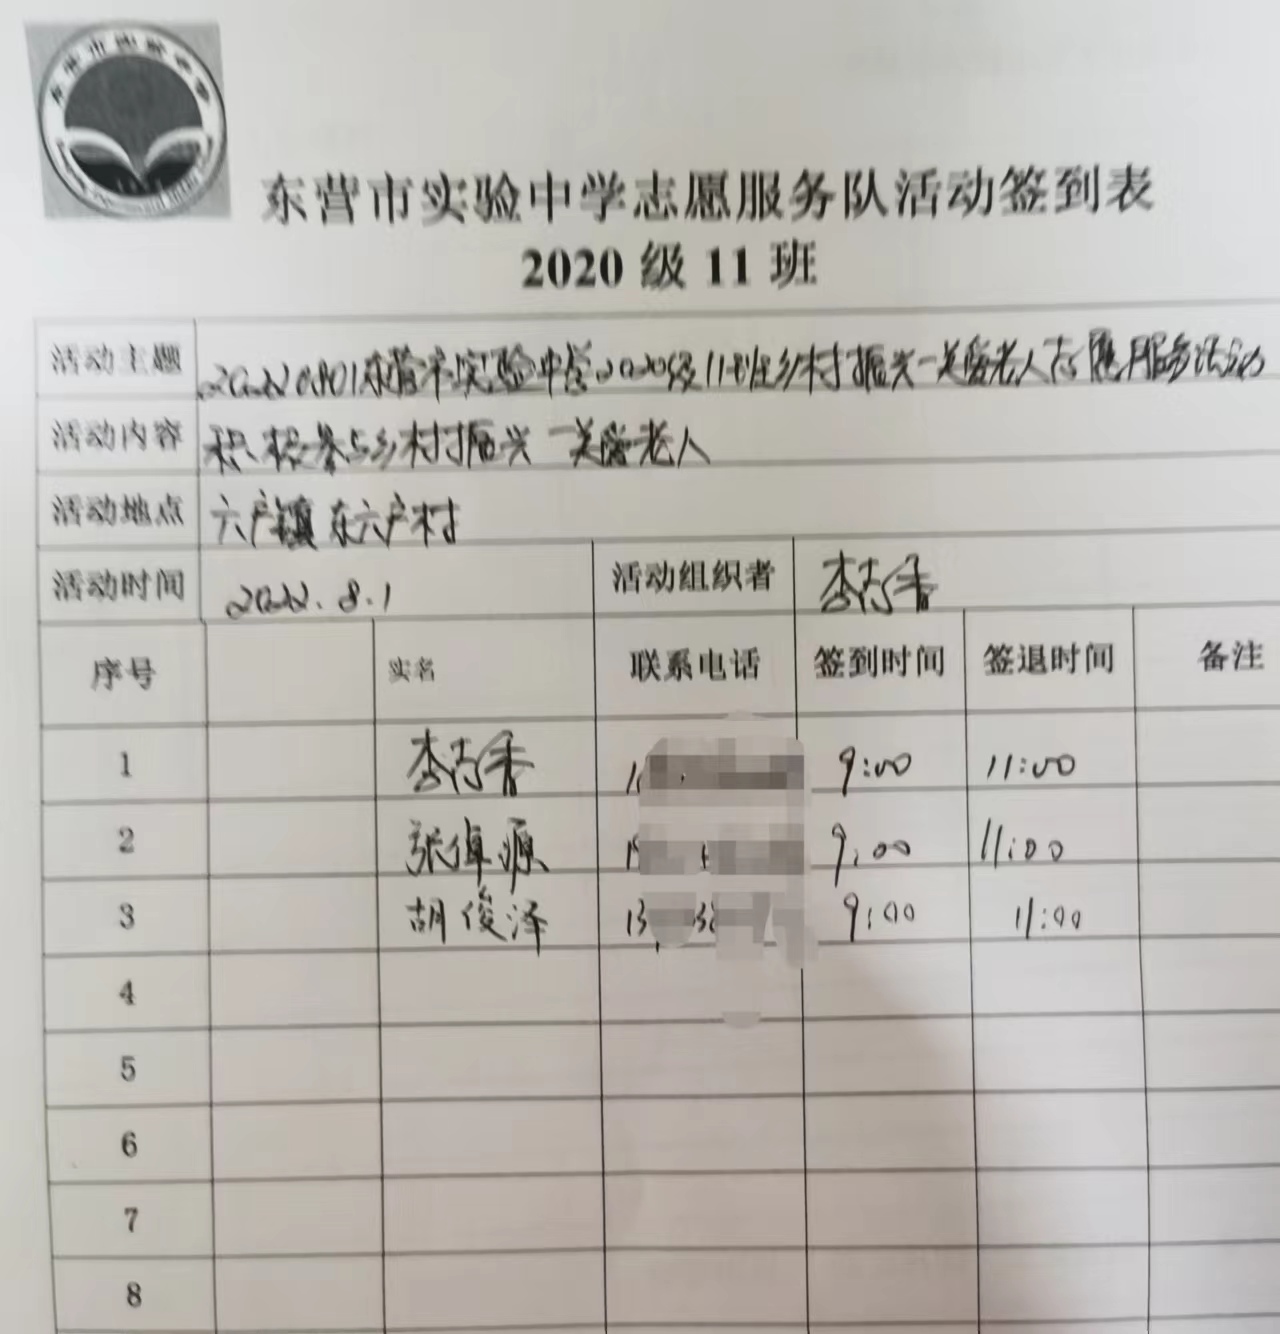 东营市实验中学志愿服务队活动签到表
2020 级 11 班
活动主题 20220801东营市实验中学2020级11班乡村振兴一关爱老人志愿服务活动
活动内容 积极参与乡村振兴 一关爱老人
活动地点 六户镇东六户村
活动时间 2022.8.1 活动组织者 李
序号 实名 联系电话 签到时间 签退时间 备注
1 李 9:00 11:00
2 张倬源 9:00 11:00
3 胡俊泽 13 9:00 11:00
4
5
6
7
8